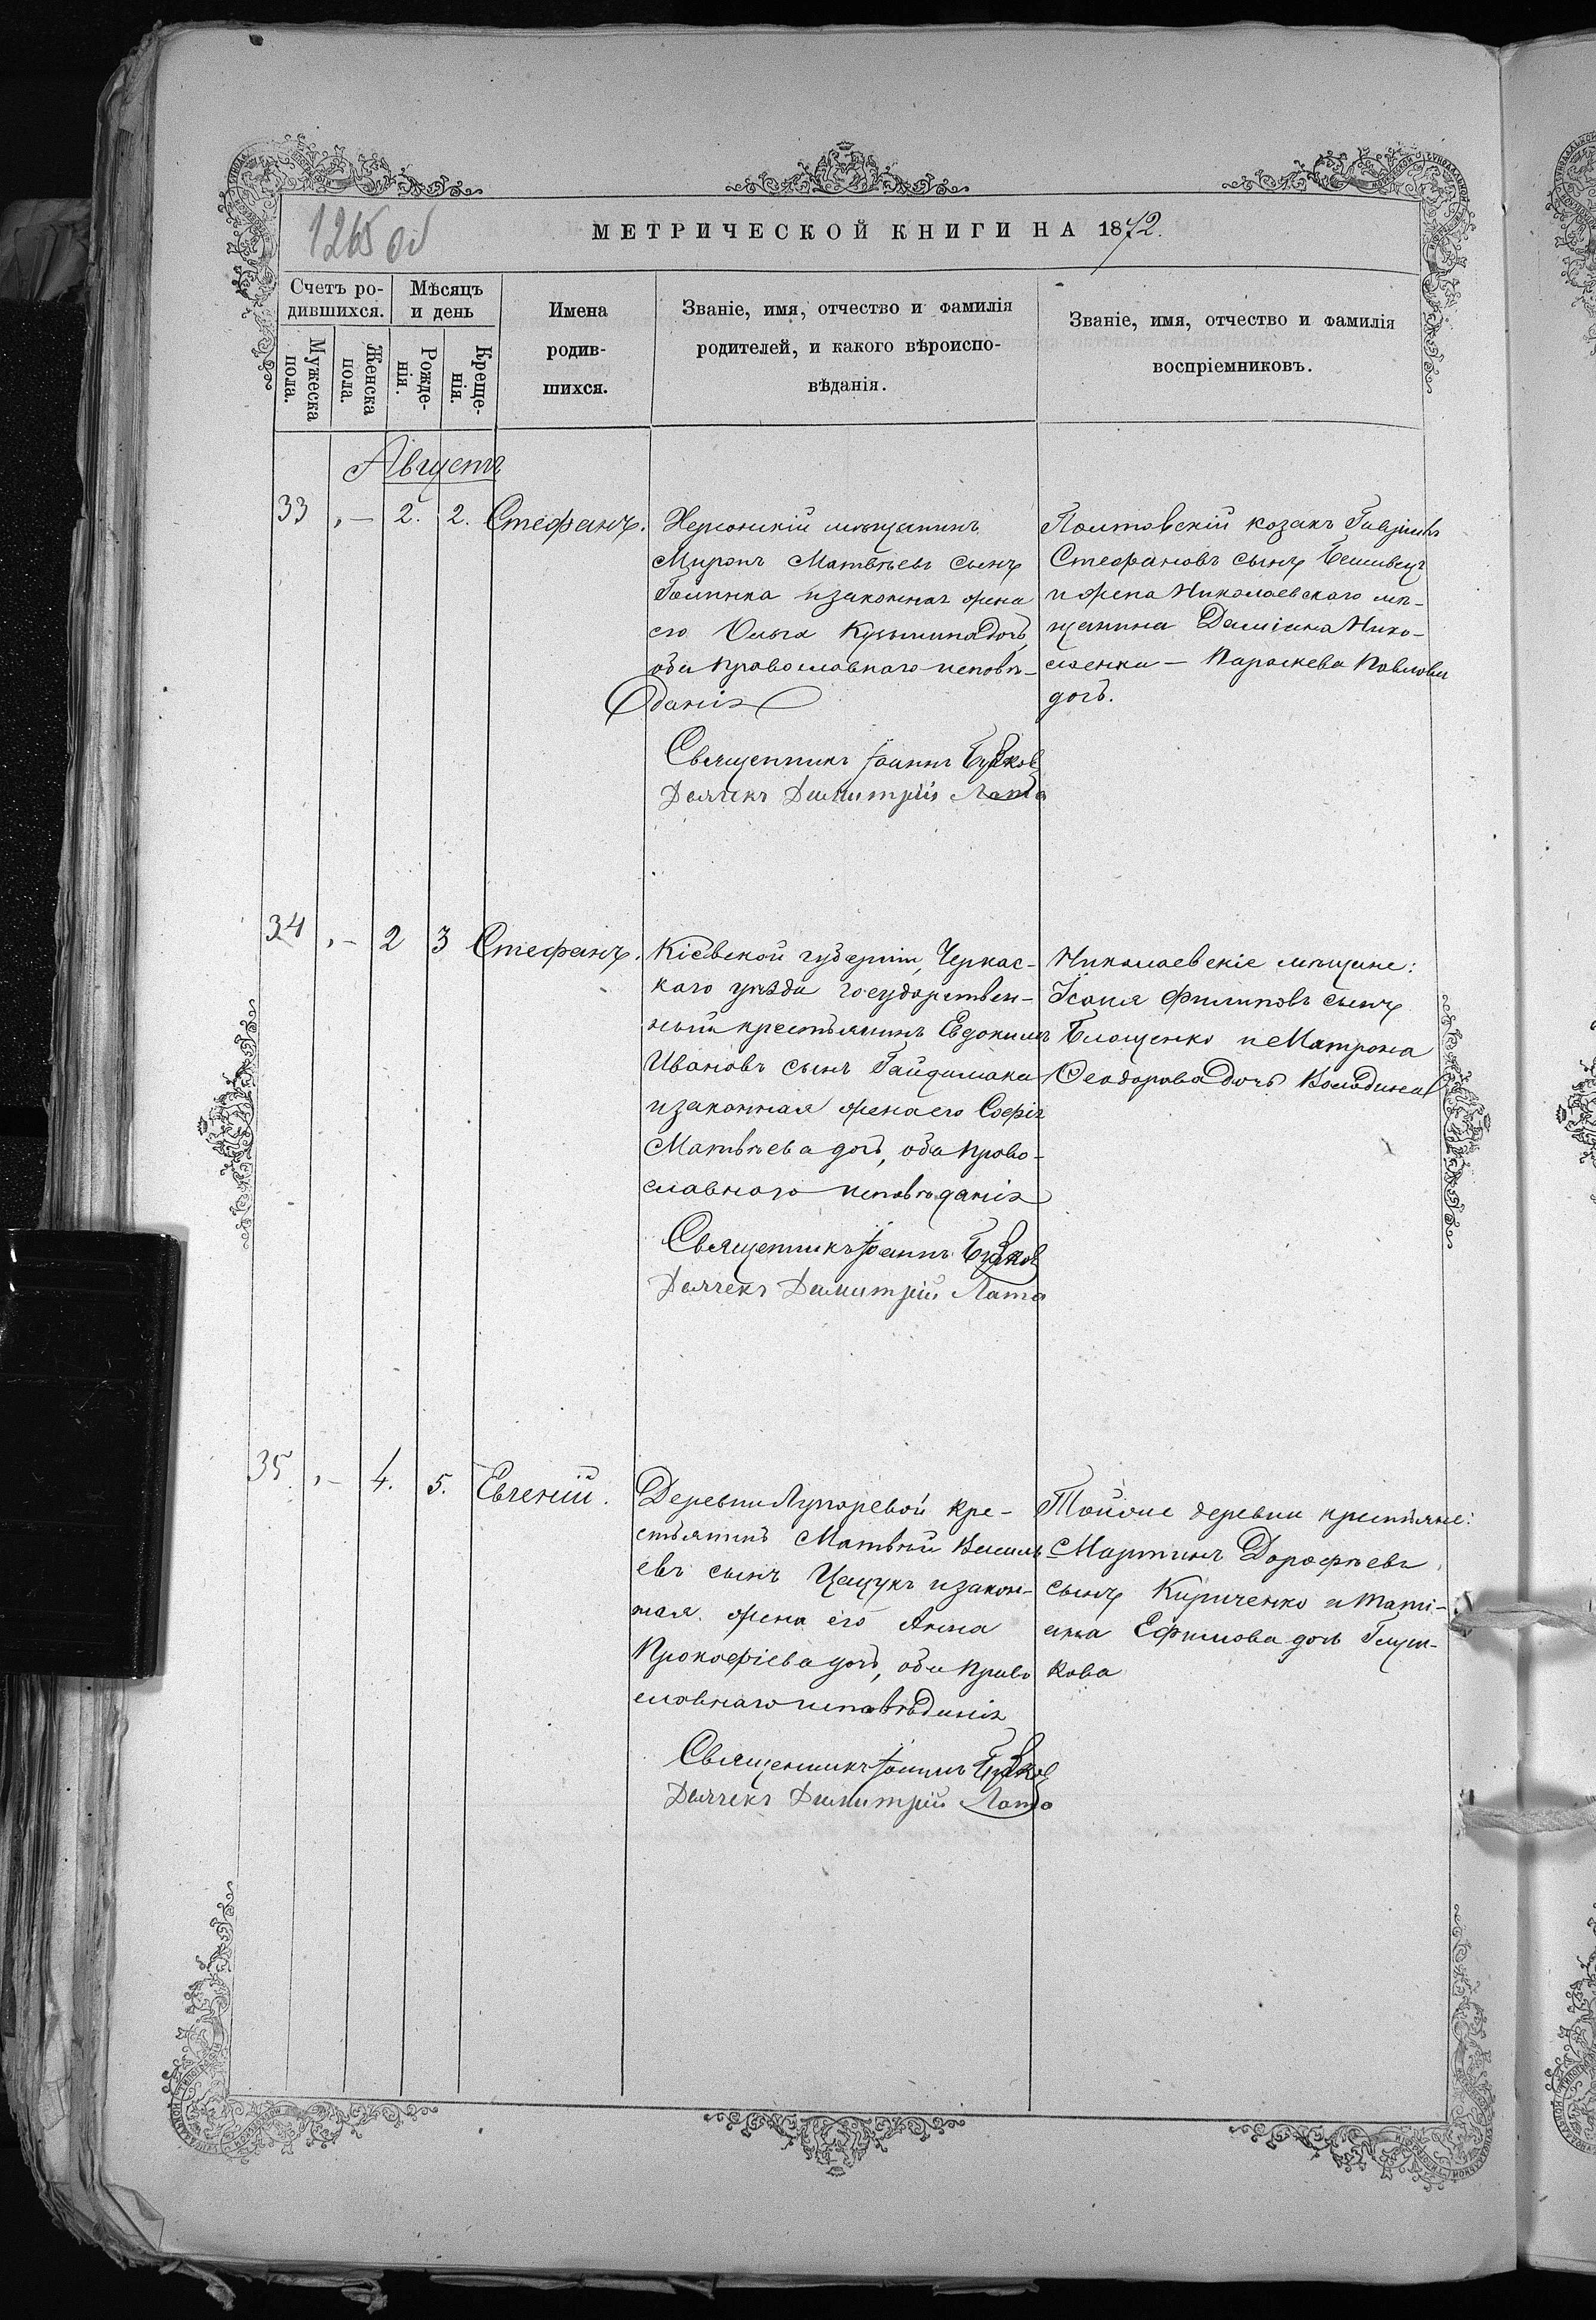 1265 об
МЕТРИЧЕСКОЙ КНИГИ НА 1872.
Счетъ ро-
дившихся.
Мужеска
пола.
Женска
пола.
Мѣсяцъ
и день
Рожде-
нія.
Креще-
нія.
Имена
родив-
шихся.
Званіе, имя, отчество и фамилія
родителей, и какого вѣроиспо-
вѣданія.
Званіе, имя, отчество и фамилія
воспріемниковъ.
Августъ
33 „ — 2. 2. Стефанъ.
Херсонскій мѣщанинъ
Миронъ Матвѣевъ сынъ
и законная жена
его Ольга Кузьмина дочь,
оба православнаго исповѣ-
данія
Священникъ Іоаннъ
Дьячекъ Димитрій Лата
Полтовскій козакъ Гавріилъ
Стефановъ сынъ
и жена Николаевскаго мѣ-
щанина Даміана Нико-
ленка — Параскева Павлова
дочь.
34 „ — 2 3 Стефанъ.
Кіевской губерніи, Черкас-
каго уѣзда государствен-
ный крестьянинъ Евдокимъ
Ивановъ сынъ Гайдамака
и законная жена его Софія
Матвѣева дочь, оба право-
славнаго исповѣданія
Священникъ Іоаннъ
Дьячекъ Димитрій Лата
Николаевскіе мѣщане:
Исаия Филиповъ сынъ
Блощенко и Матрона
Ѳеодорова дочь
35. „ — 4. 5. Евгеній.
Деревни Лупаревой кре-
стьянинъ Матвѣй Василь
евъ сынъ Цацукъ и закон-
ная жена его Анна
Прокофіева дочь, оба право
славнаго исповѣданія
Священникъ Іоаннъ
Дьячекъ Димитрій Лата
Тойже деревни крестьяне:
Мартинъ Дорофѣевъ
сынъ Кириченко и Таті-
яна Ефимова дочь Глуш-
кова